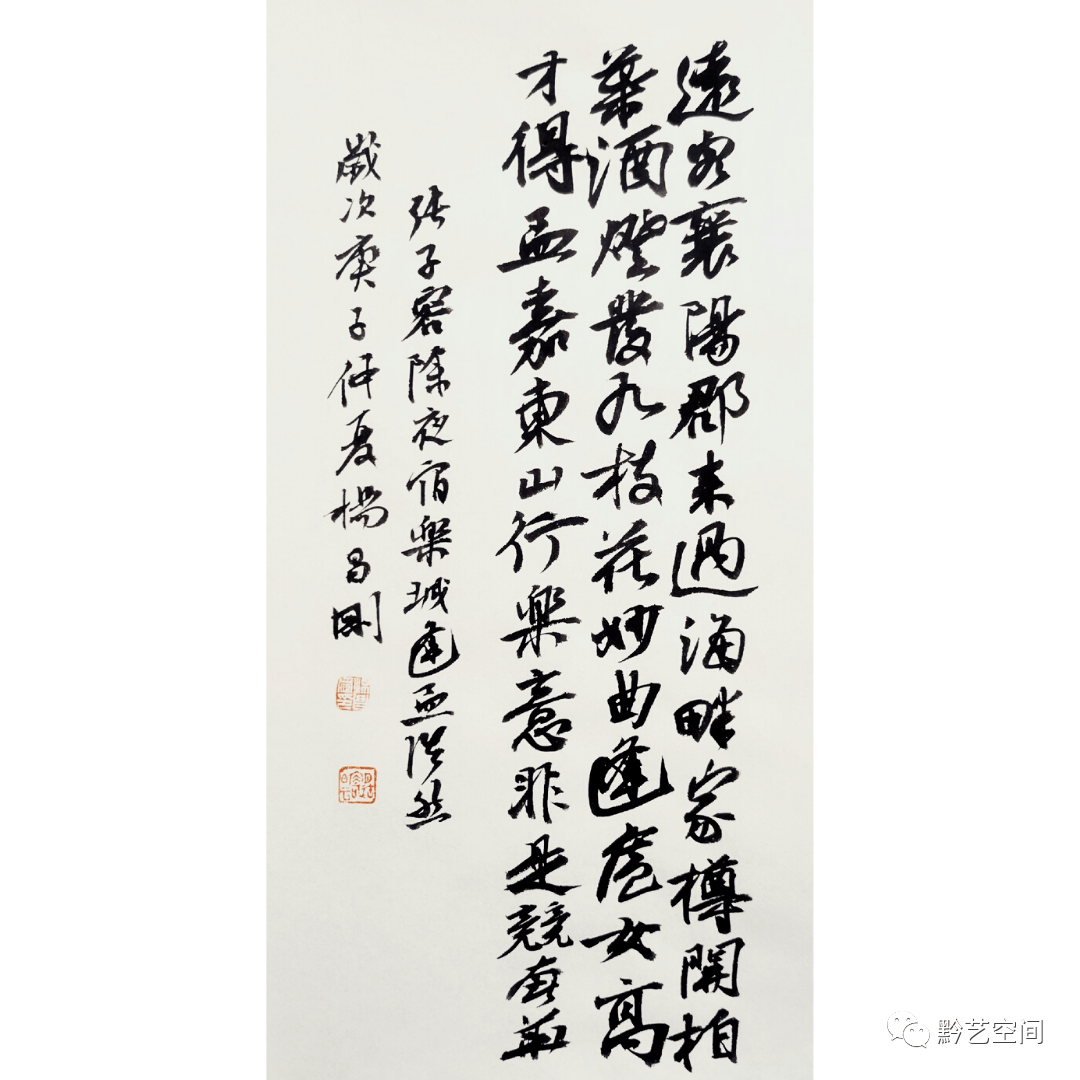 遠客襄陽郡来過海畔家樽開柏
葉酒燈發九枝花妙曲逢盧女高
才得孟嘉東山行樂意非是競華
張子容除夜宿樂城逢孟浩然
歲次庚子仲夏楊昌剛
黔艺空间